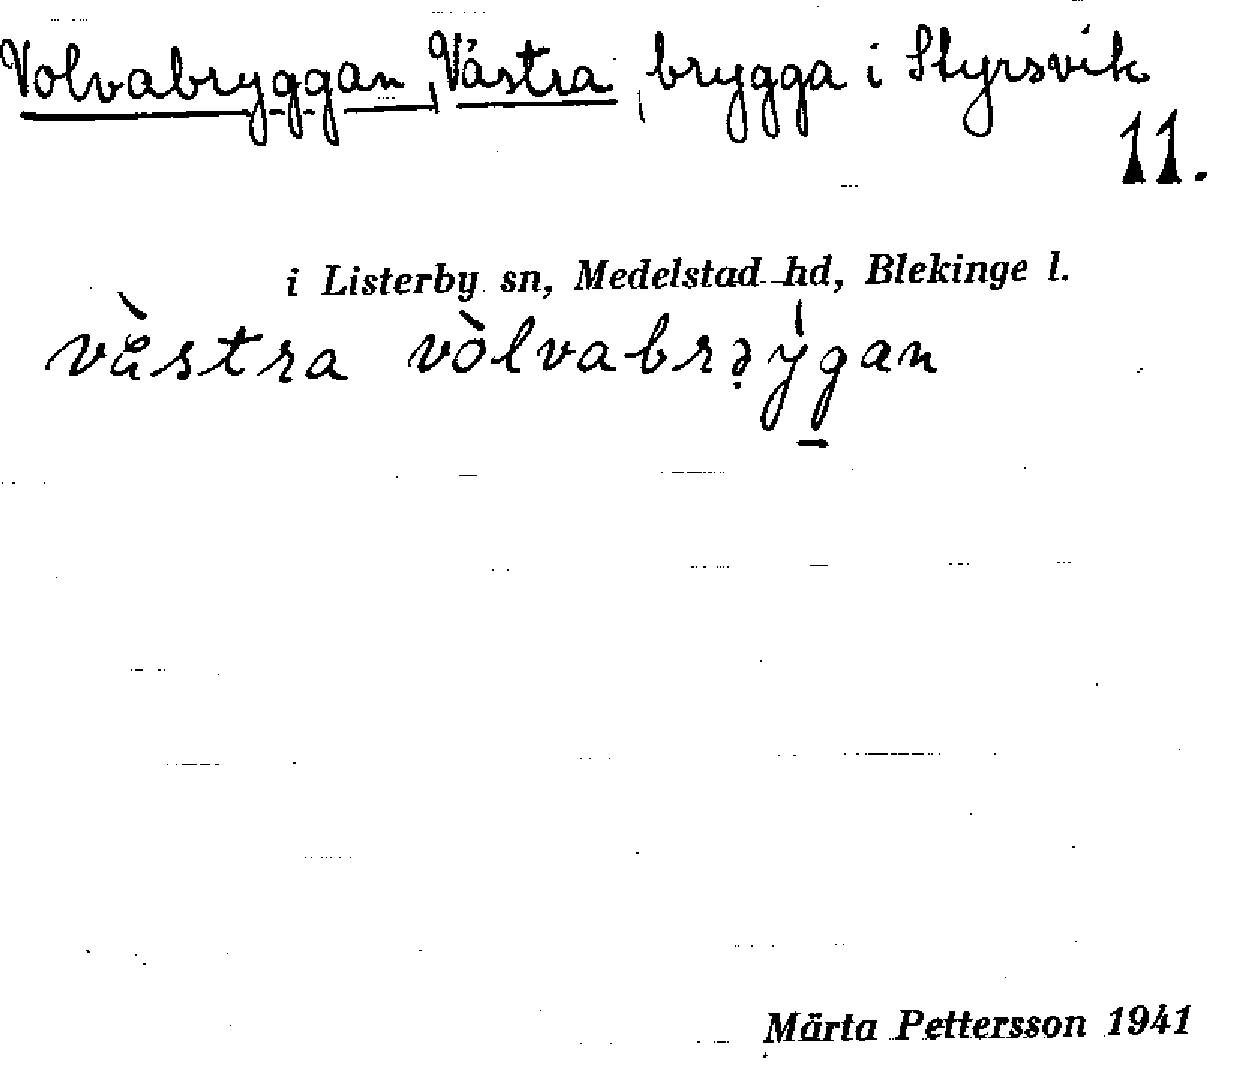 Volvabryggan, Västra, brygga i Styrsvik
11.
i Listerby sn, Medelstad hd, Blekinge l.
vä̀stra vòlvabrəy̍gan
Märta Pettersson 1941